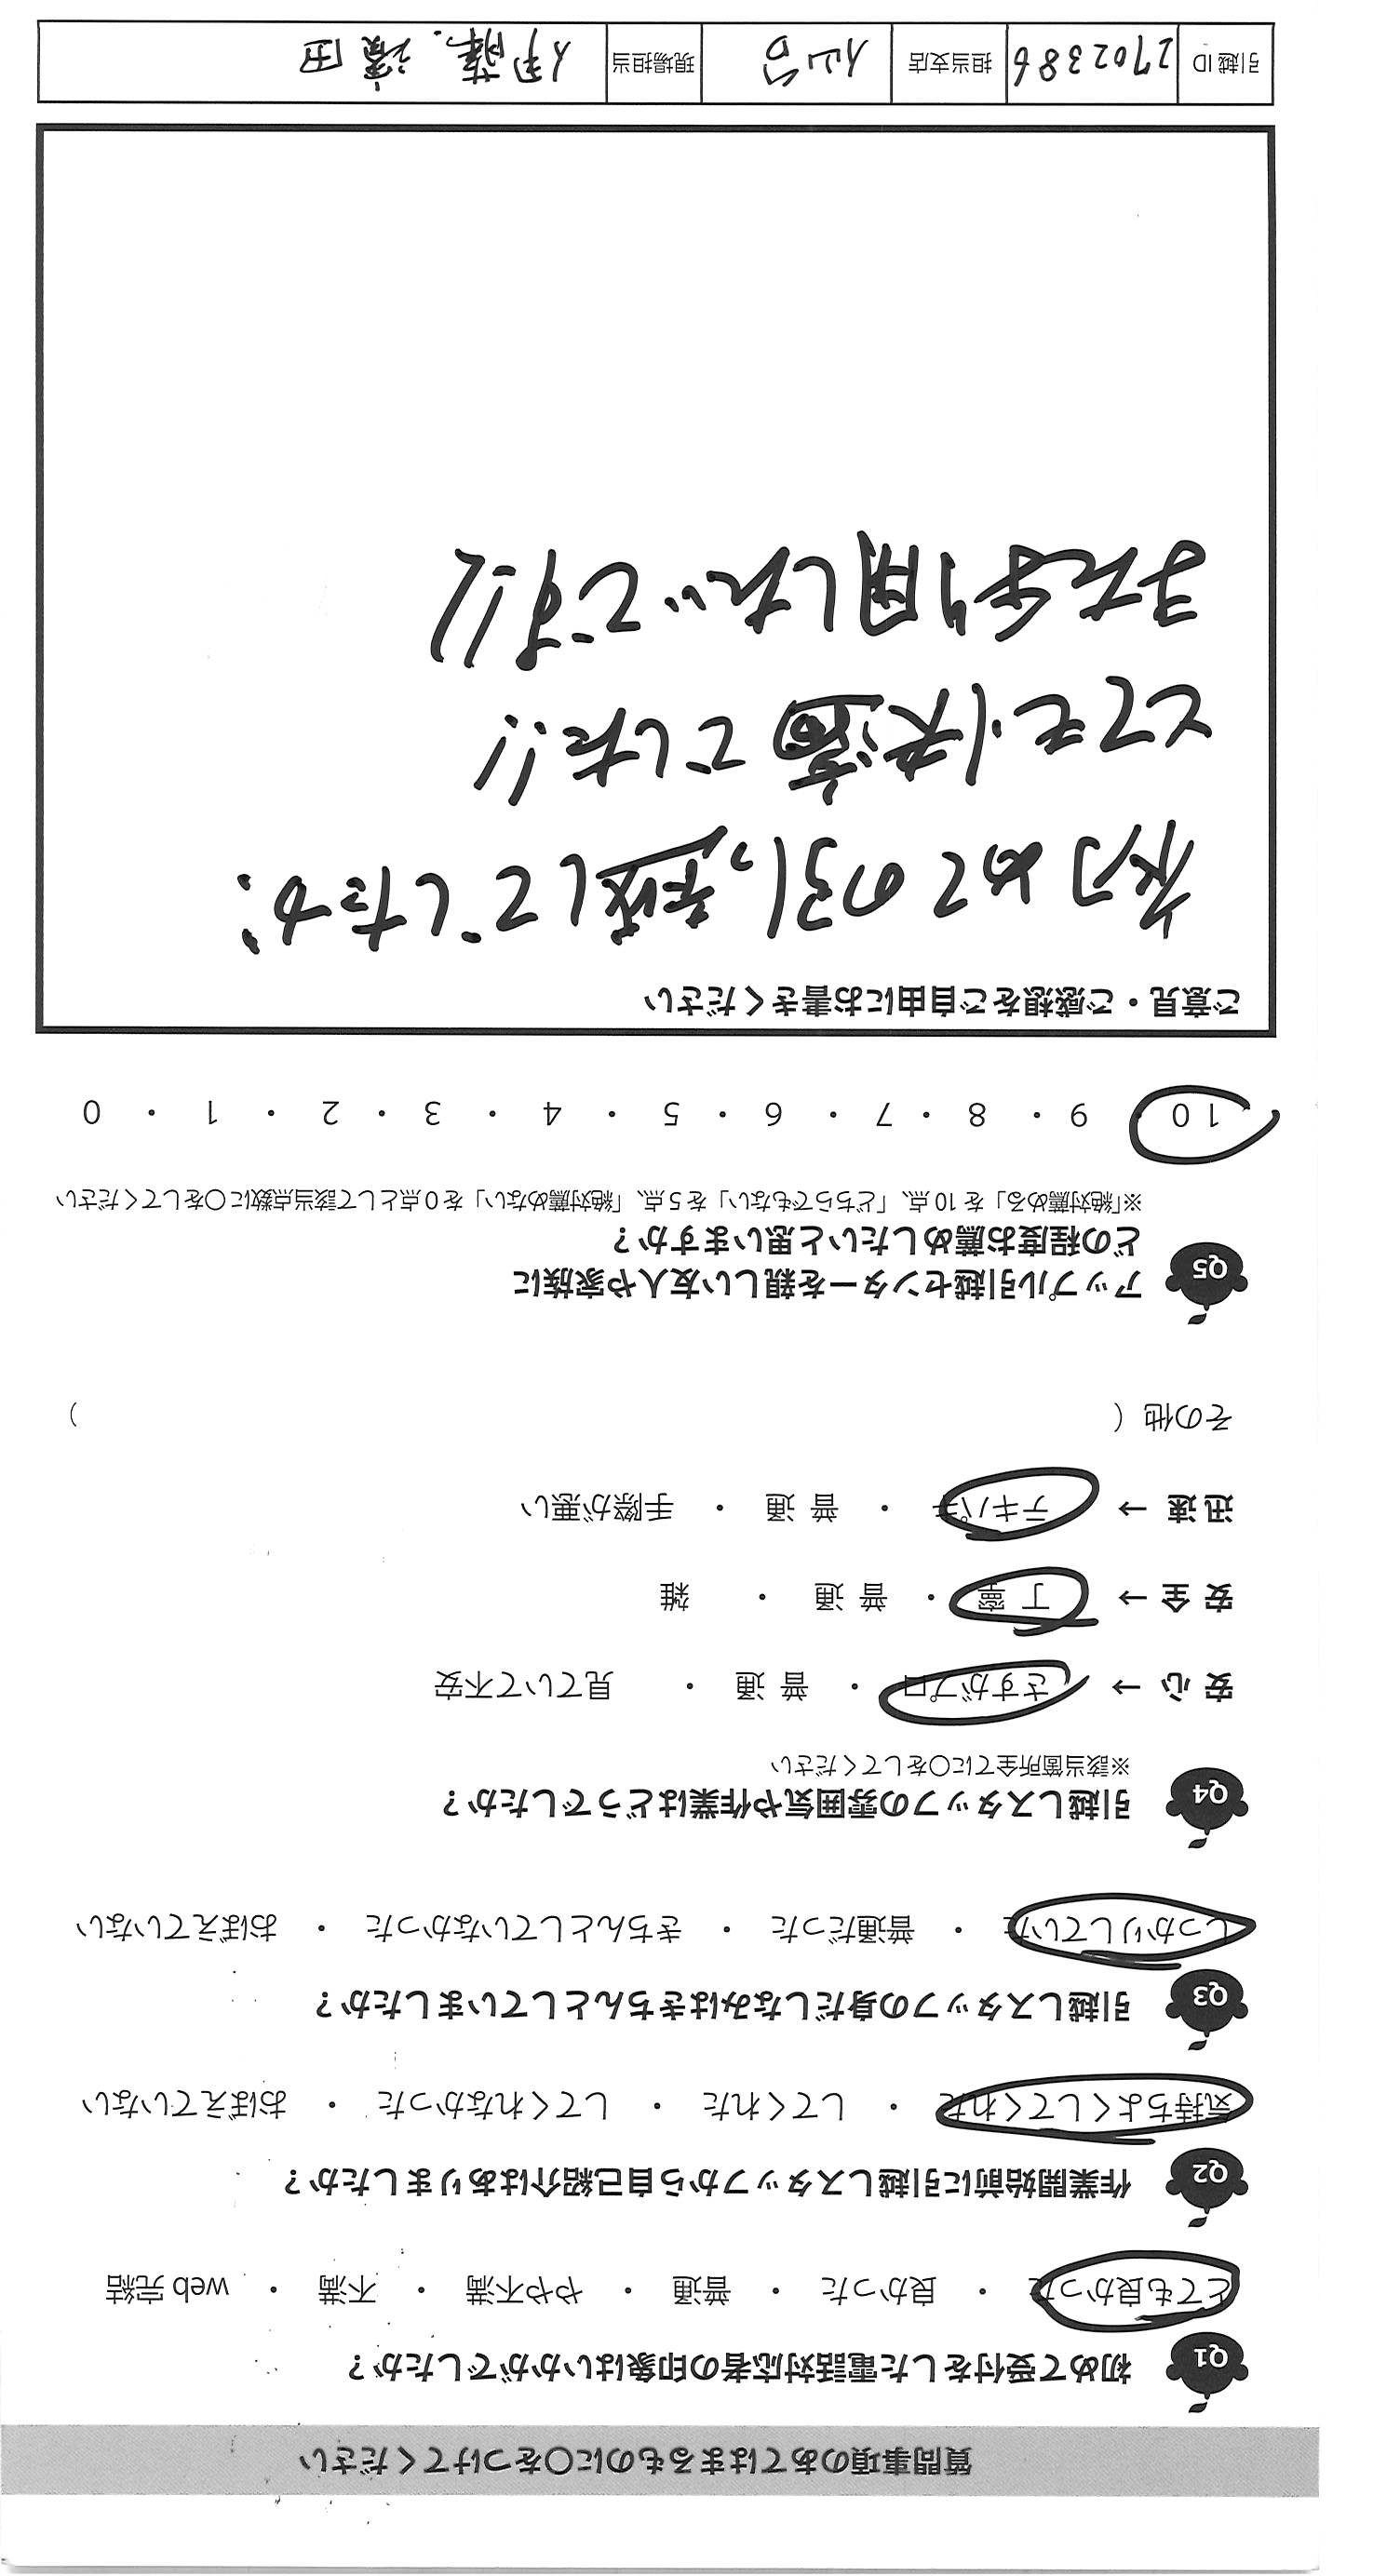 質問事項のあてはまるものに○をつけてください
Q1 初めて受付をした電話対応者の印象はいかがでしたか？
とても良かった ・ 良かった ・ 普通 ・ やや不満 ・ 不満 ・ web 完結
Q2 作業開始前に引越しスタッフから自己紹介はありましたか？
気持ちよくしてくれた ・ してくれた ・ してくれなかった ・ おぼえていない
Q3 引越しスタッフの身だしなみはきちんとしていましたか？
しっかりしていた ・ 普通だった ・ きちんとしていなかった ・ おぼえていない
Q4 引越しスタッフの雰囲気や作業はどうでしたか？
※該当箇所全てに○をしてください
安 心 → さすがプロ ・ 普 通 ・ 見ていて不安
安 全 → 丁 寧 ・ 普 通 ・ 雑
迅 速 → テキパキ ・ 普 通 ・ 手際が悪い
その他（ ）
Q5 アップル引越センターを親しい友人や家族に
どの程度お薦めしたいと思いますか？
※「絶対薦める」を 10 点、「どちらでもない」を 5 点、「絶対薦めない」を 0 点として該当点数に○をしてください
10 ・ 9 ・ 8 ・ 7 ・ 6 ・ 5 ・ 4 ・ 3 ・ 2 ・ 1 ・ 0
ご意見・ご感想をご自由にお書きください
初めての引っ越しでしたが、
とても快適でした!!
また利用したいです!!
引越 ID 2702386 担当支店 仙台 現場担当 伊藤、濱田